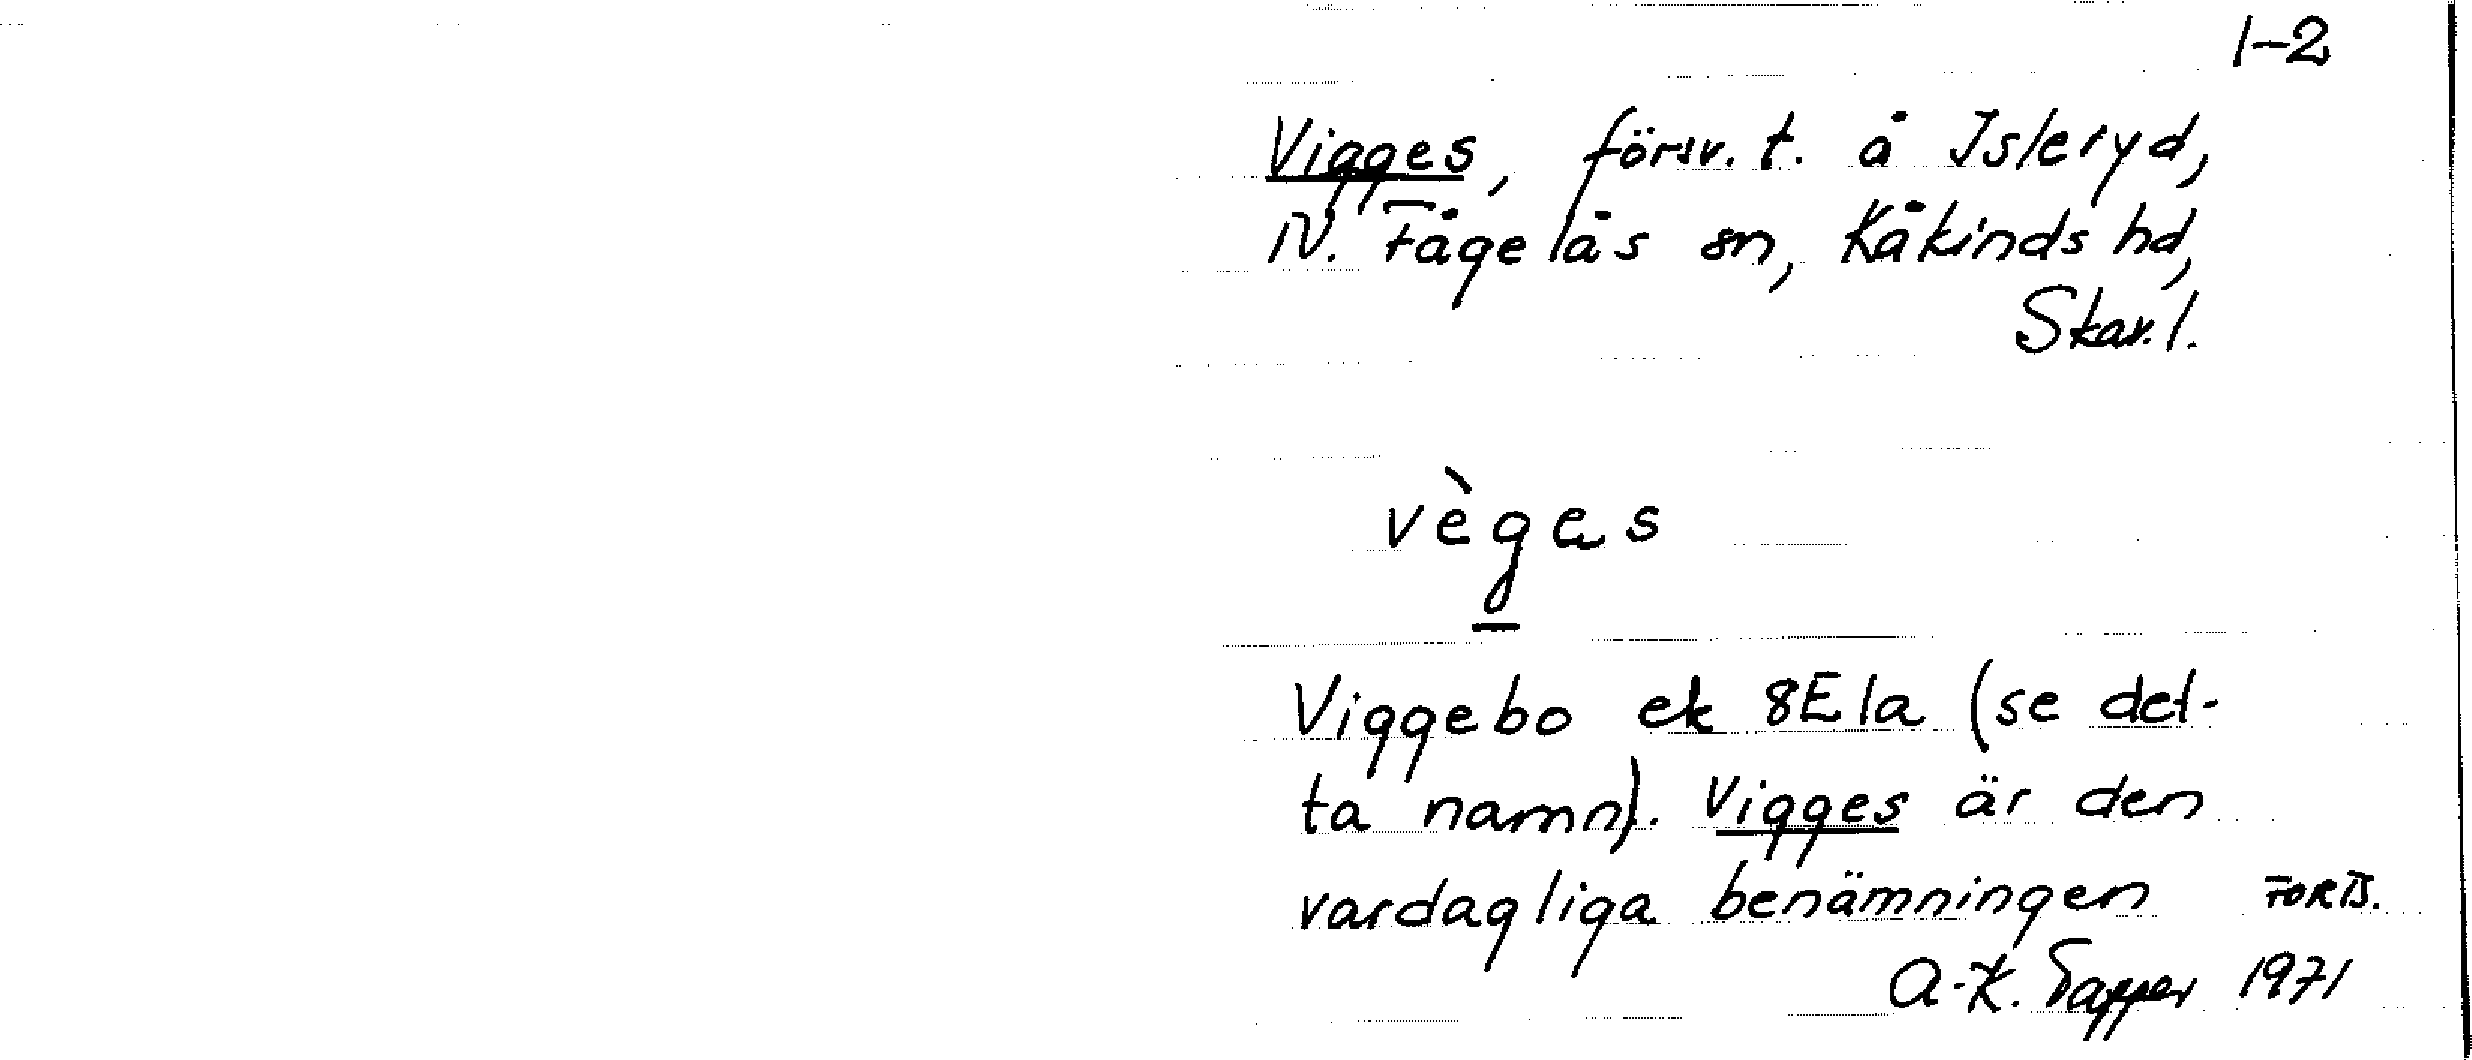 1-2
Vigges, försv. t. å Isleryd,
N. Fågelås sn, Kåkinds hd,
Skar. l.
vègas
Viggebo ek 8E1a (se det-
ta namn). Vigges är den
vardagliga benämningen FORTS.
A-K. Tapper 1971